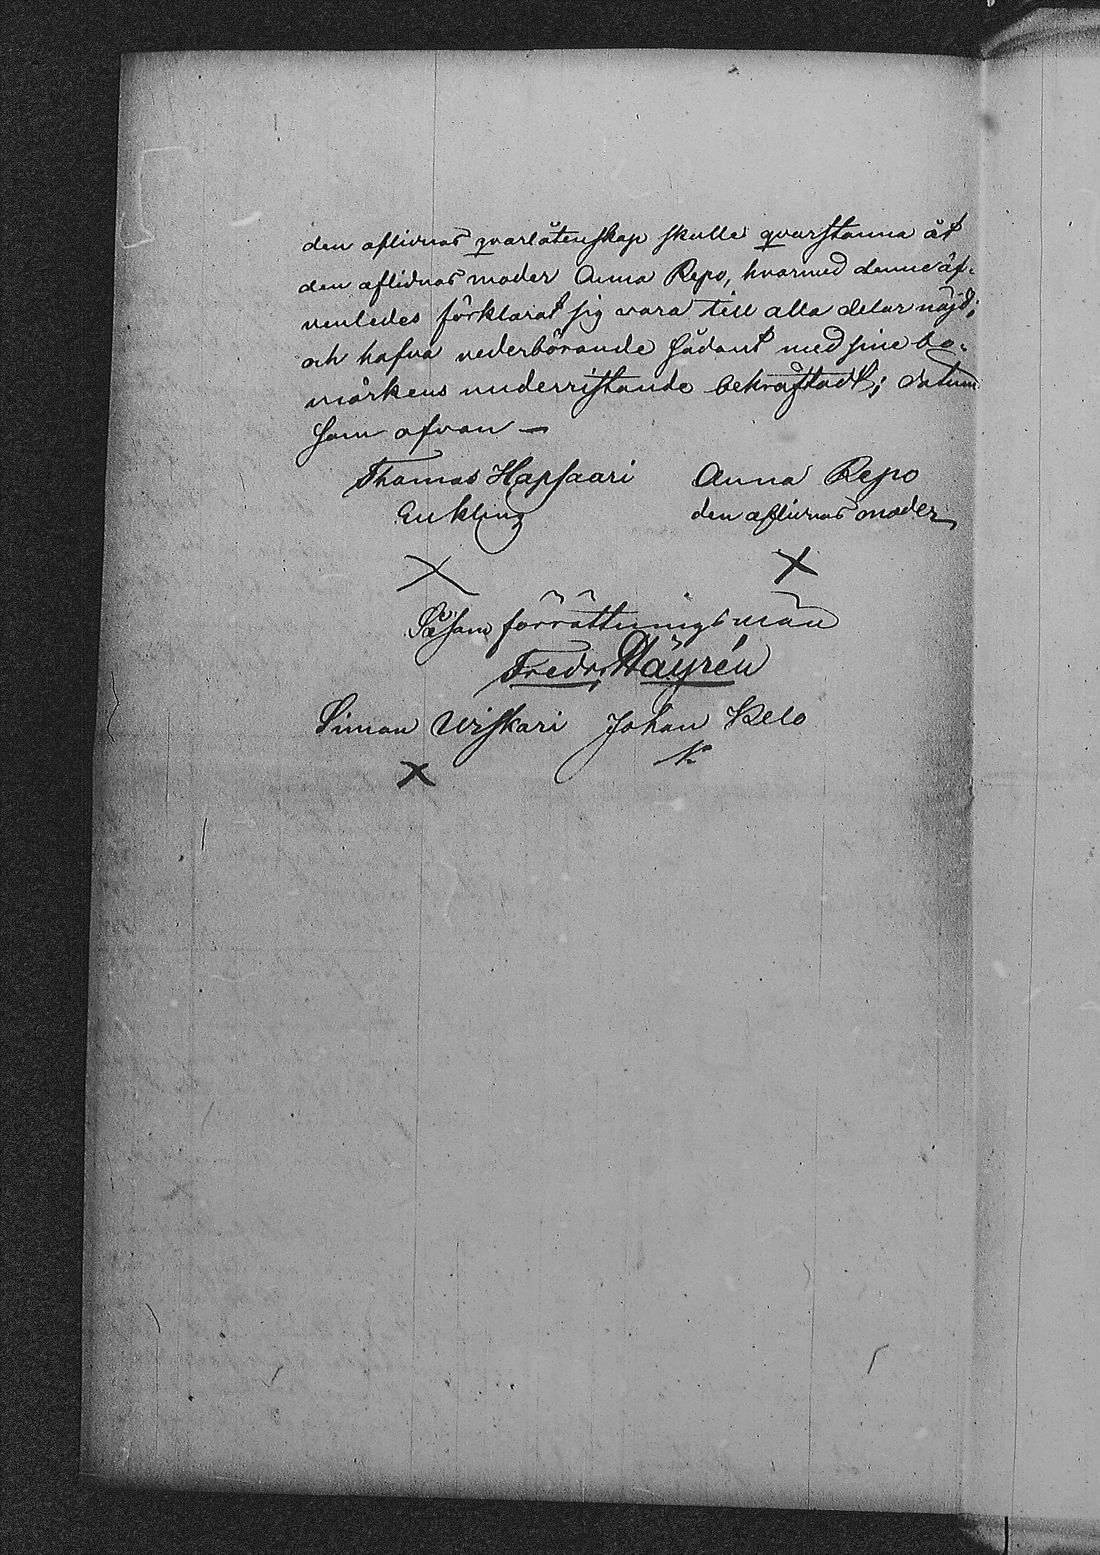 den aflidnas qvarlåtenskap skulle qvarstanna åt
den aflidnas moder Anna Repo, hvarmed denne äf-
venledes förklarat sig vara till alla delar nöjd;
och hafva vederbörande sådant med sine bo-
märkens underristande bekräftadt; datum
som ofvan —
Thomas Hapsaari Anna Repo
Enkling den aflidnas moder
X X
Såsom förrättningsmän
Fredr. Häyrén
Simon Wiskari Johan Kelo
X